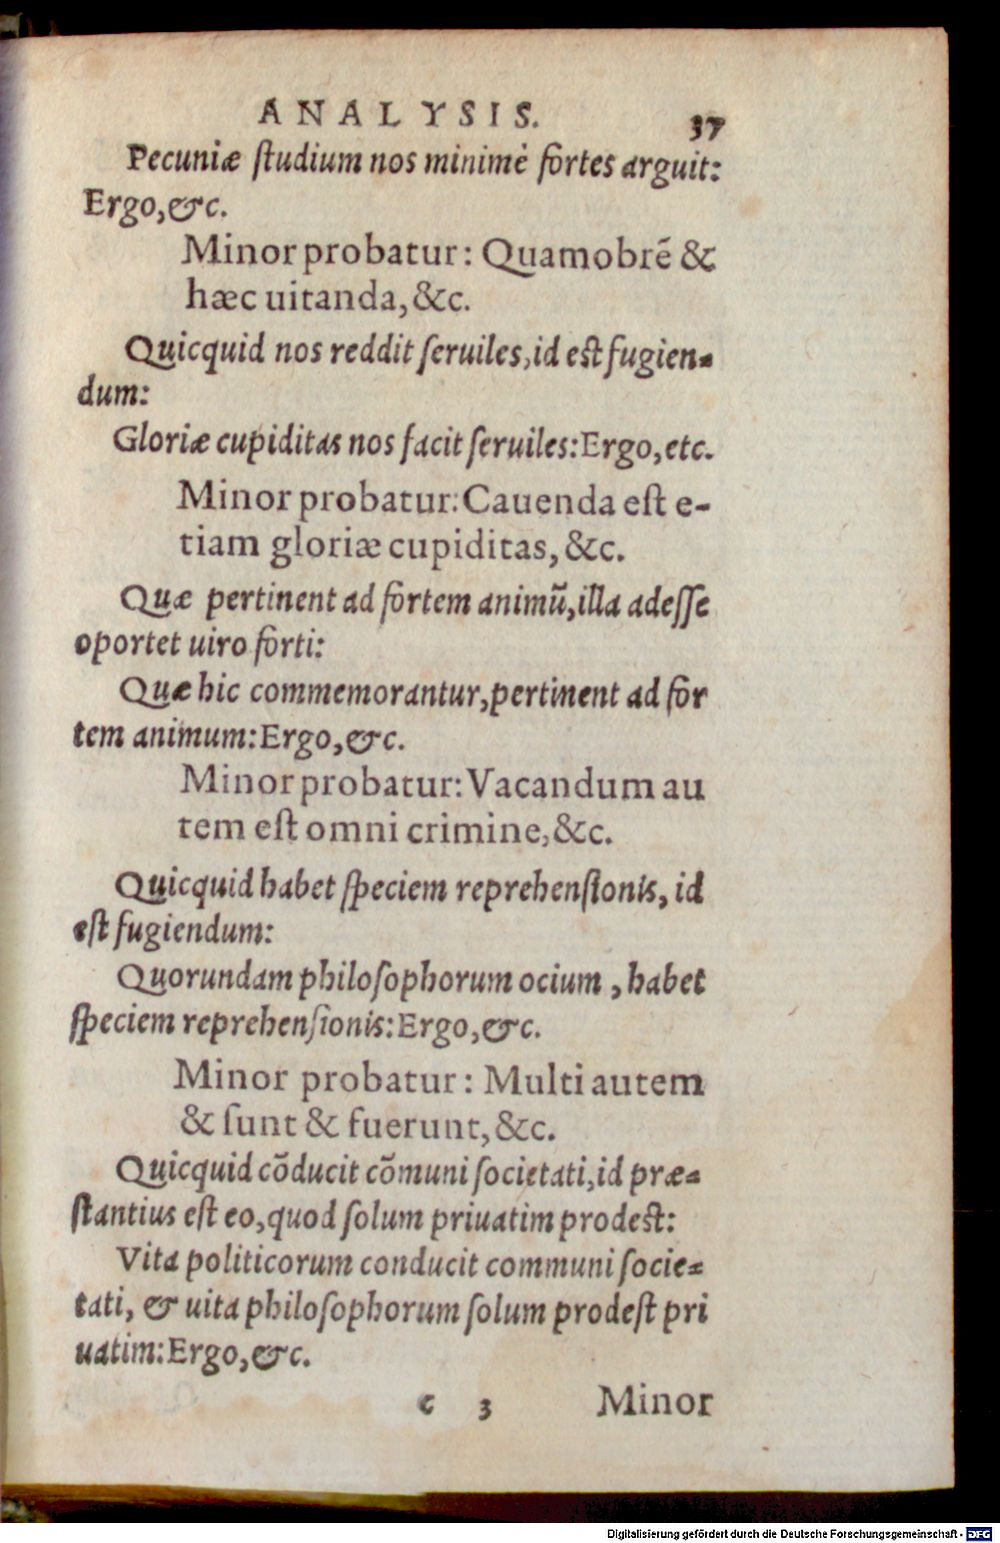 ANALYSIS. 37
Pecuniæ ſtudium nos minimè fortes arguit:
Ergo, &c.
Minor probatur: Quamobrē &
hæc uitanda, &c.
Quicquid nos reddit ſeruiles, id eſt fugien-
dum:
Gloriæ cupiditas nos facit ſeruiles: Ergo, etc.
Minor probatur: Cauenda eſt e-
tiam gloriæ cupiditas, &c.
Quæ pertinent ad fortem animū, illa adeſſe
oportet uiro forti:
Quæ hic commemorantur, pertinent ad for
tem animum: Ergo, &c.
Minor probatur: Vacandum au
tem eſt omni crimine, &c.
Quicquid habet ſpeciem reprehenſionis, id
eſt fugiendum:
Quorundam philoſophorum ocium, habet
ſpeciem reprehenſionis: Ergo, &c.
Minor probatur: Multi autem
& ſunt & fuerunt, &c.
Quicquid cōducit cōmuni ſocietati, id præ-
ſtantius eſt eo, quod ſolum priuatim prodeſt:
Vita politicorum conducit communi ſocie-
tati, & uita philoſophorum ſolum prodeſt pri
uatim: Ergo, &c.
c 3 Minor
Digitalisierung gefördert durch die Deutsche Forschungsgemeinschaft - DFG